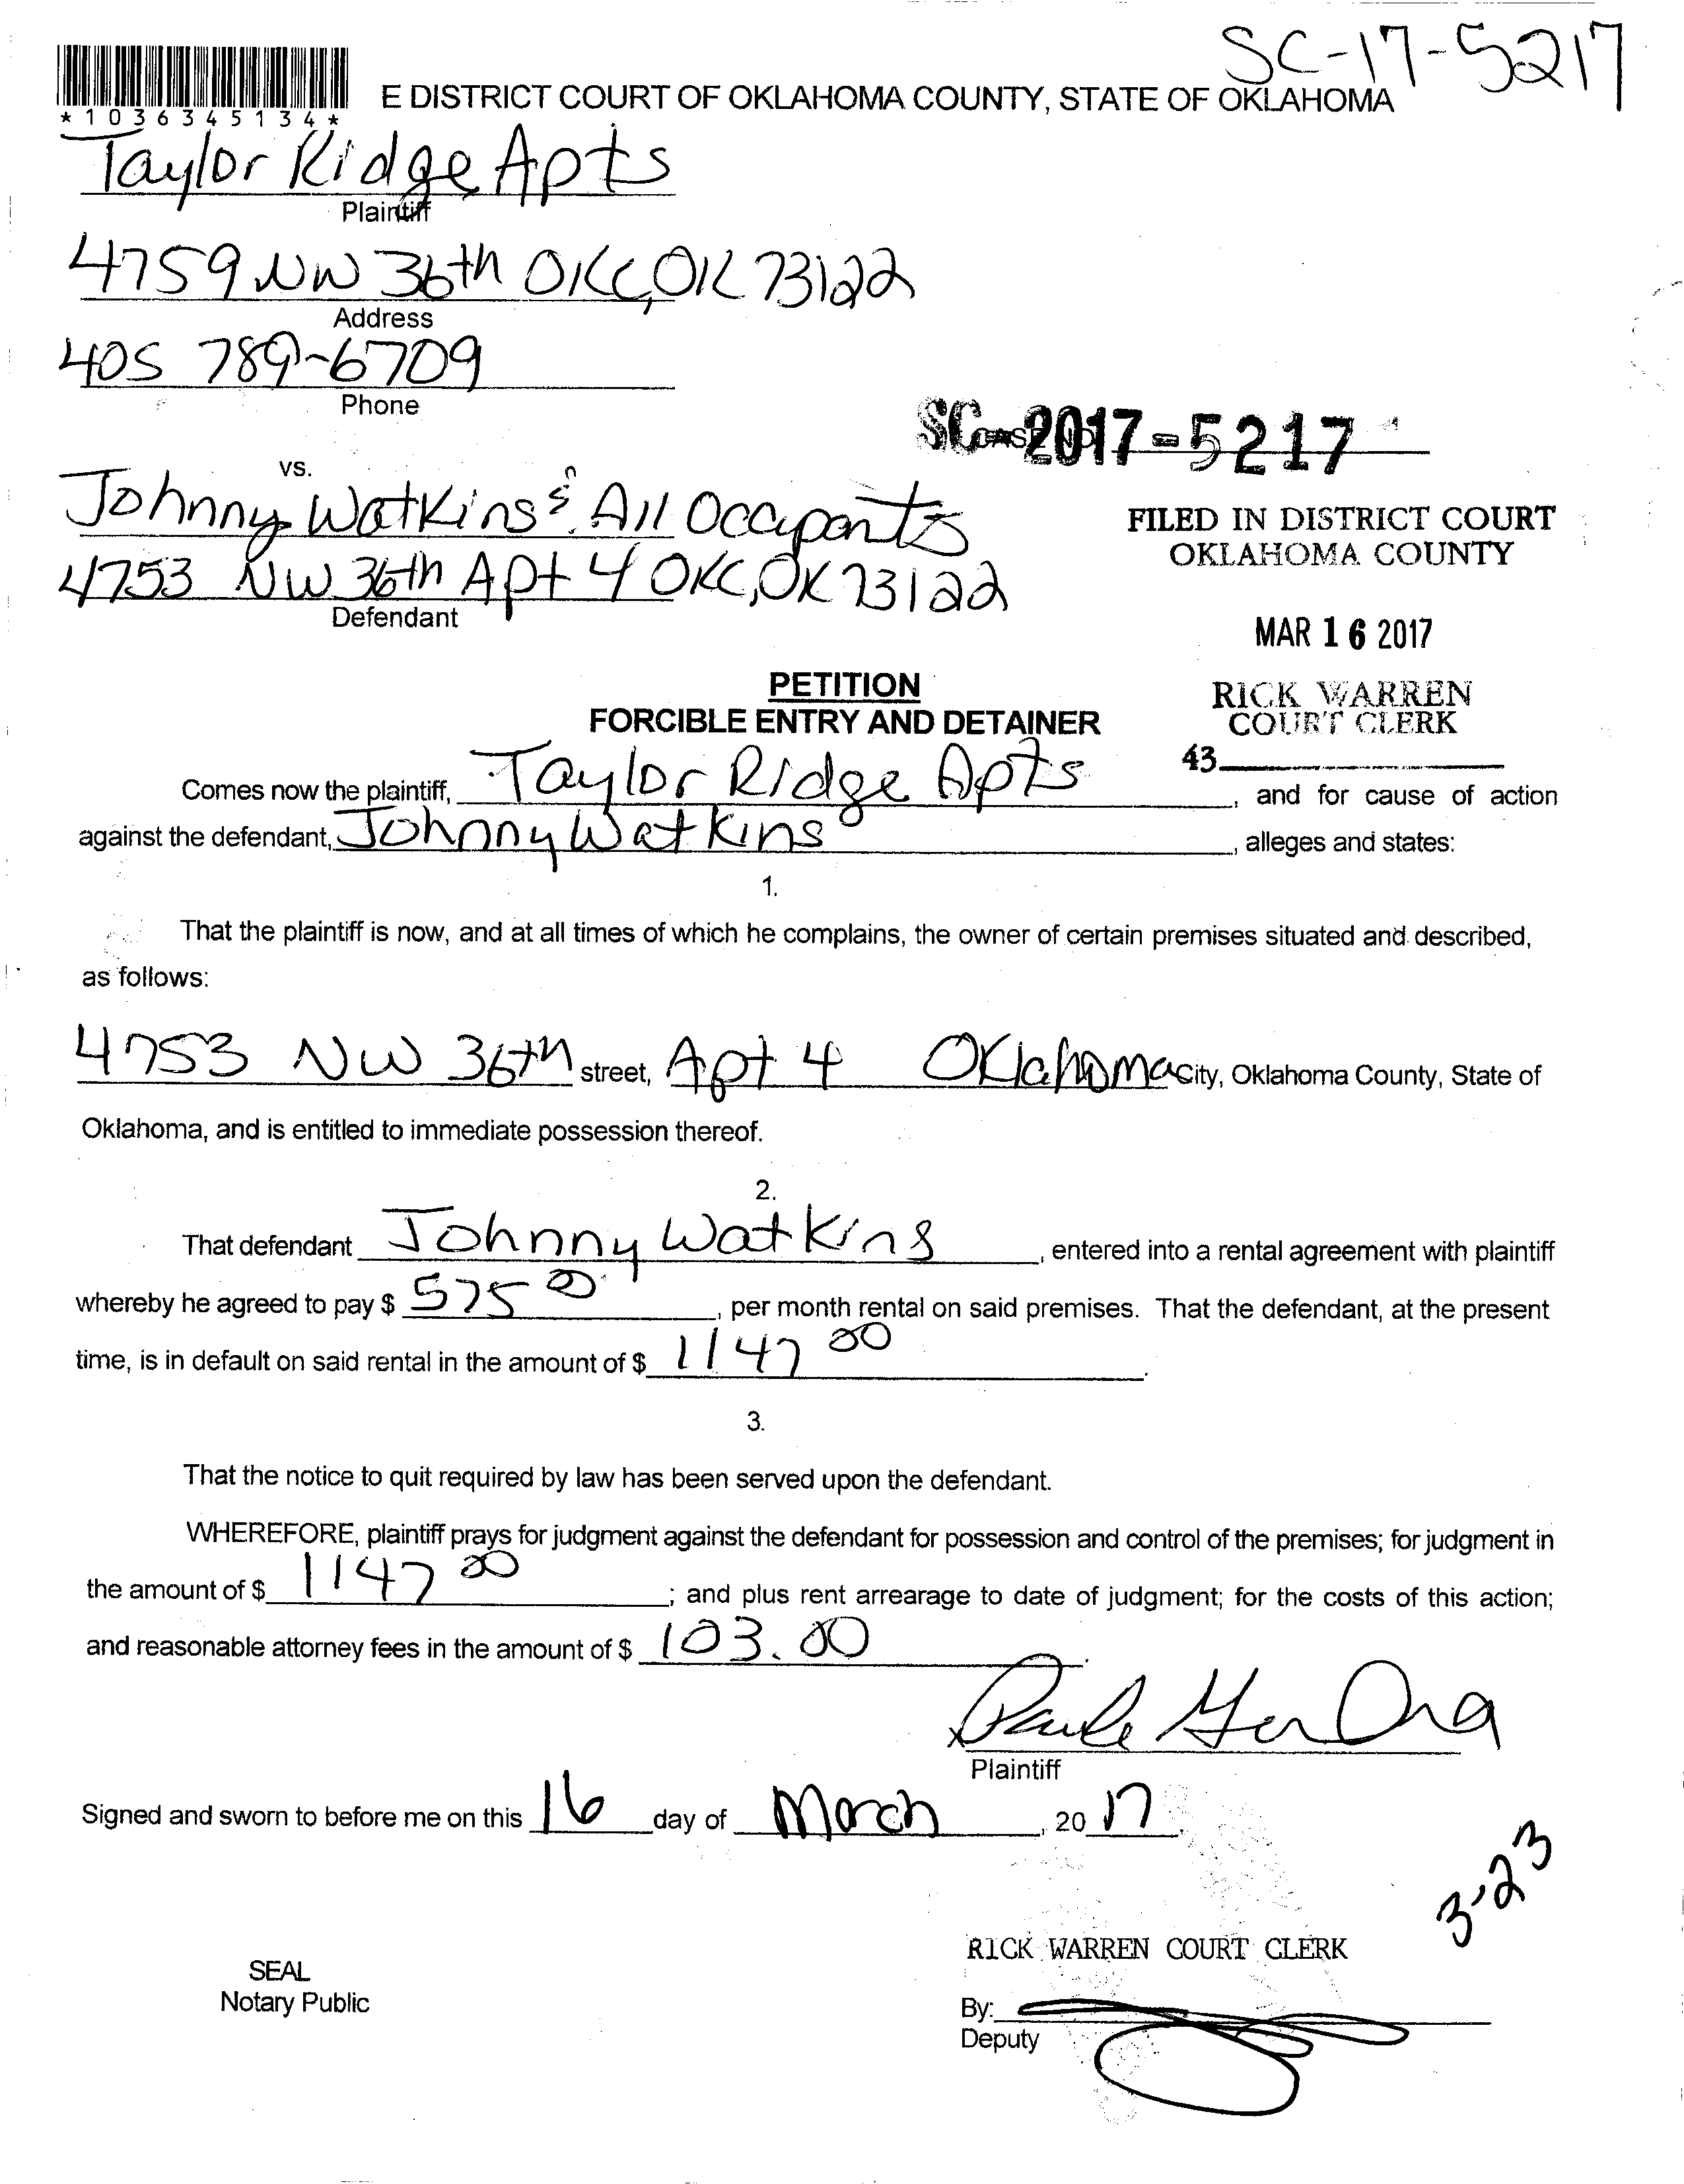 SC-17-5217
E DISTRICT COURT OF OKLAHOMA COUNTY, STATE OF OKLAHOMA
*1036345134*
Taylor Ridge Apts
Plaintiff
4759 NW 36th OKC, OK 73122
Address
405 789-6709
Phone
SC-2017-5217
vs.
Johnny Watkins & All Occupants
FILED IN DISTRICT COURT
OKLAHOMA COUNTY
4753 NW 36th Apt 4 OKC, OK 73122
Defendant
MAR 16 2017
PETITION
FORCIBLE ENTRY AND DETAINER
RICK WARREN
COURT CLERK
43
Comes now the plaintiff, Taylor Ridge Apts, and for cause of action
against the defendant, Johnny Watkins, alleges and states:
1.
That the plaintiff is now, and at all times of which he complains, the owner of certain premises situated and described,
as follows:
4753 NW 36th street, Apt 4 Oklahoma City, Oklahoma County, State of
Oklahoma, and is entitled to immediate possession thereof.
2.
That defendant Johnny Watkins, entered into a rental agreement with plaintiff
whereby he agreed to pay $ 575 00, per month rental on said premises. That the defendant, at the present
time, is in default on said rental in the amount of $ 1147 00.
3.
That the notice to quit required by law has been served upon the defendant.
WHEREFORE, plaintiff prays for judgment against the defendant for possession and control of the premises; for judgment in
the amount of $ 1147 00; and plus rent arrearage to date of judgment; for the costs of this action;
and reasonable attorney fees in the amount of $ 103.00.
Plaintiff
Signed and sworn to before me on this 16 day of March, 20 17.
3-23
RICK WARREN COURT CLERK
SEAL
Notary Public
By:
Deputy